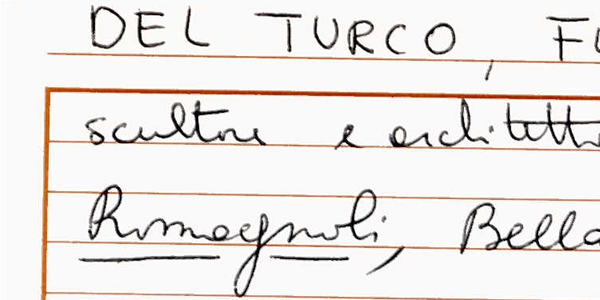 DEL TURCO, FU
scultore e architetto
Romagnoli, Bella